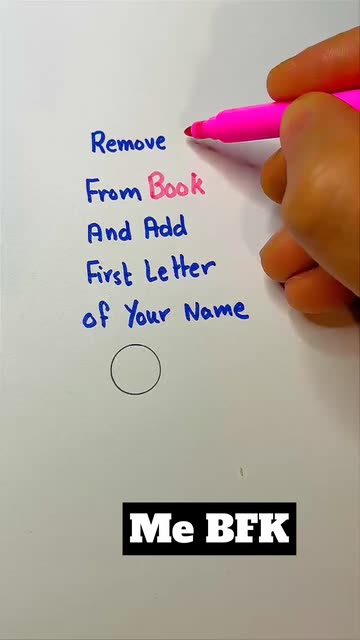 Remove
From Book
And Add
First Letter
of Your Name
Me BFK